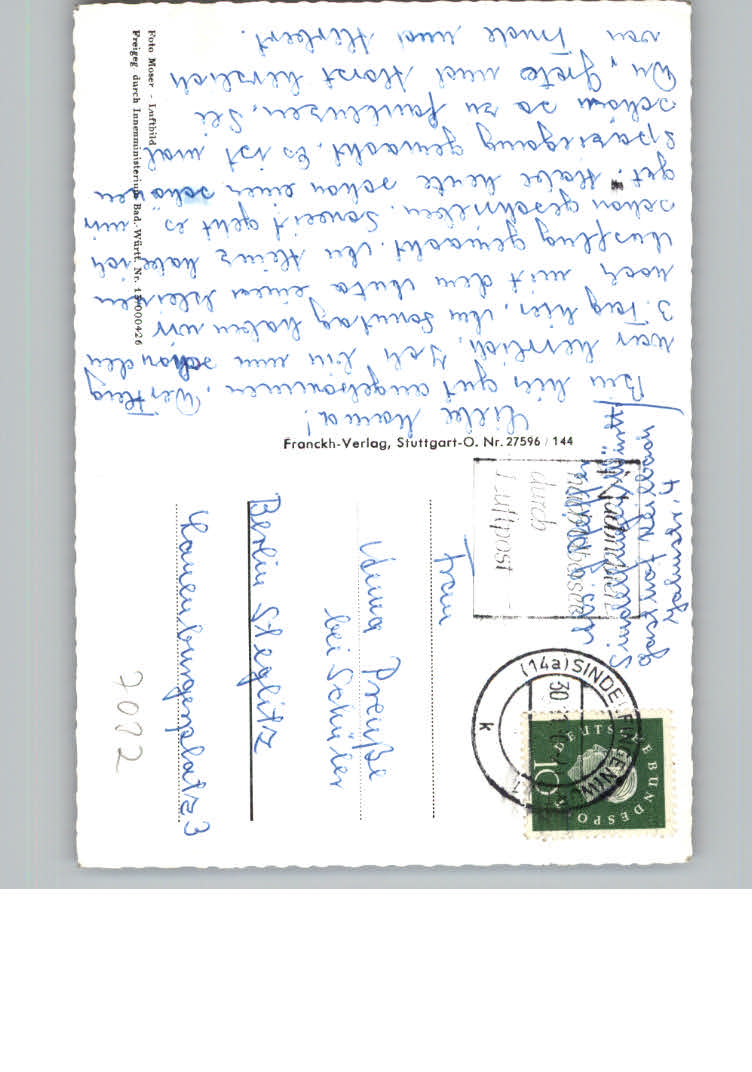 Liebe Mama!
Bin hier gut angekommen. Der Flug
war herrlich. Ich bin nun schon den
3. Tag hier. Am Sonntag haben wir
noch mit dem Auto einen kleinen
Ausflug gemacht. An Heinz habe ich
schon geschrieben. Soweit geht es mir
gut. Habe heute schon einen schönen
Spaziergang gemacht. Es ist mal
schön so zu faulenzen. Sei
Du, Grete und Horst herzlich
von Trude und Herbert.
Foto Moser - Luftbild
Freigeg. durch Innenministerium Bad.-Württ. Nr.
Franckh-Verlag, Stuttgart-O. Nr. 27596 / 144
durch
Luftpost
(14a) SINDELFINGEN
k
DEUTSCHE BUNDESPOST
10
Frau
Anna Preuße
bei Schüler
Berlin Steglitz
Lauenburgerplatz 3
7092